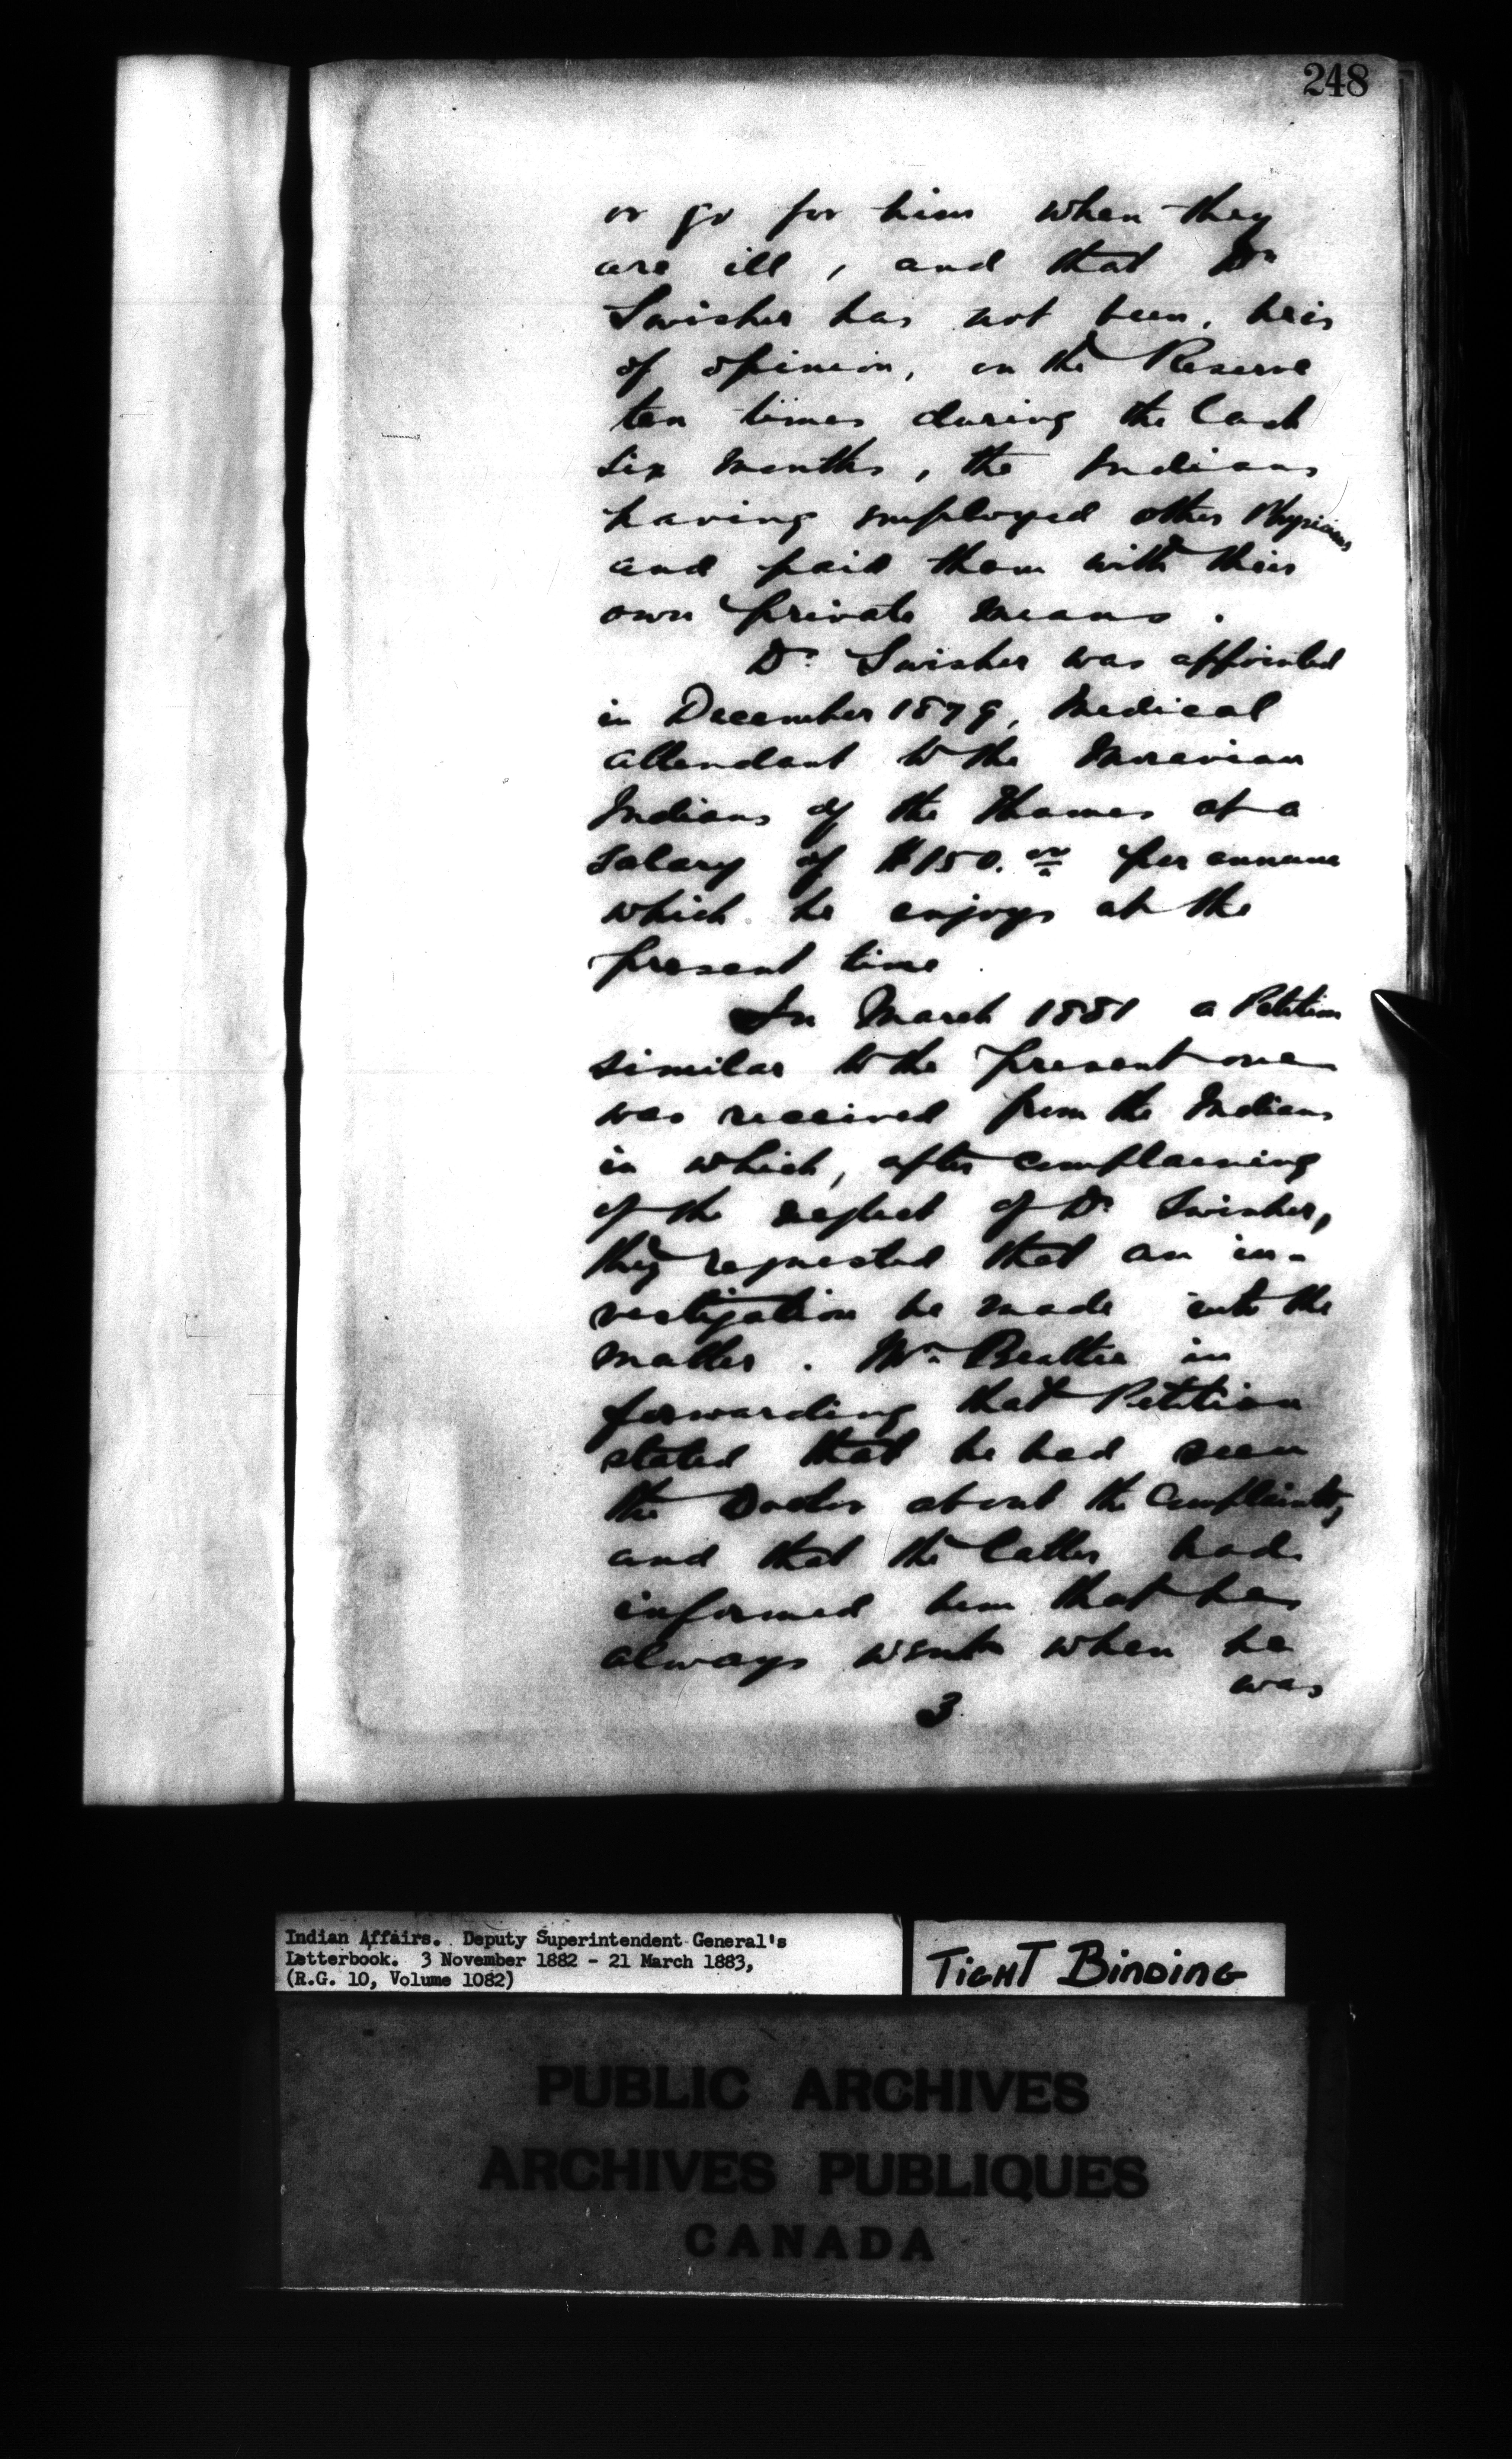 248
or go for him when they
are ill, and that Dr
Swisher has not been, he is
of opinion, on the Reserve
ten times during the last
six months, the Indians
having employed other Physicians
and paid them with their
own private means.
Dr. Swisher was appointed
in December 1879, Medical
attendant to the Moravian
Indians of the Thames at a
salary of $150.00 per annum
which he enjoys at the
present time.
In March 1881 a Petition
similar to the present one
was received from the Indians
in which, after complaining
of the neglect of Dr Swisher,
they requested that an in-
vestigation be made into the
matter. Mr. Beattie in
forwarding that Petition
stated that he had seen
the Doctor about the Complaints,
and that the latter had
informed him that he
always went when he
was
3
Indian Affairs. Deputy Superintendent General's
Letterbook. 3 November 1882 - 21 March 1883,
(R.G. 10, Volume 1082)
TIGHT BINDING
PUBLIC ARCHIVES
ARCHIVES PUBLIQUES
CANADA